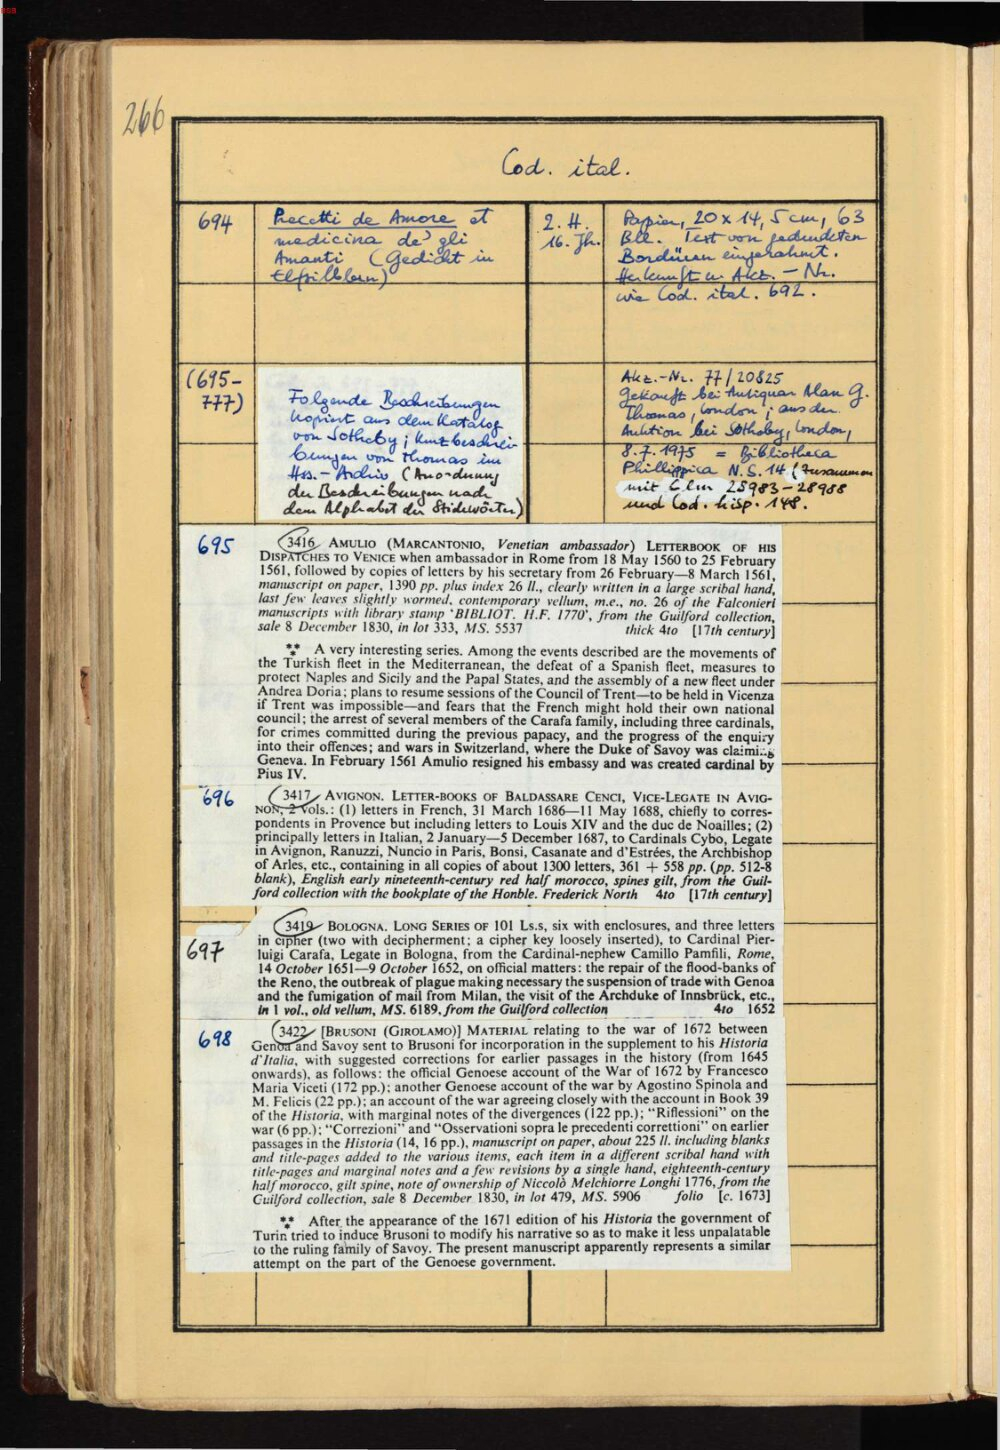 266
Cod. ital.
694
Precetti de Amore et
medicina de' gli
Amanti (Gedicht in
Elfsilblern)
2. H.
16. Jh.
Papier, 20 x 14,5 cm, 63
Bll. Text von gedruckten
Bordüren eingerahmt.
Herkunft u. Akz. - Nr.
wie Cod. ital. 692.
(695-
777)
Folgende Beschreibungen
kopiert aus dem Katalog
von Sotheby; Kurzbeschrei
bungen von Thomas im
Hss.-Archiv (Anordnung
der Beschreibungen nach
dem Alphabet der Stichwörter)
Akz.-Nr. 77/20825
Gekauft bei Antiquar Alan G.
Thomas, London; aus der
Auktion bei Sotheby, London,
8.7.1975 = Bibliotheca
Phillippica N.S. 14 (zusammen
mit Clm 28983-28988
und Cod. hisp. 148.
695
3416 AMULIO (MARCANTONIO, Venetian ambassador) LETTERBOOK OF HIS
DISPATCHES TO VENICE when ambassador in Rome from 18 May 1560 to 25 February
1561, followed by copies of letters by his secretary from 26 February—8 March 1561,
manuscript on paper, 1390 pp. plus index 26 ll., clearly written in a large scribal hand,
last few leaves slightly wormed, contemporary vellum, m.e., no. 26 of the Falconieri
manuscripts with library stamp 'BIBLIOT. H.F. 1770', from the Guilford collection,
sale 8 December 1830, in lot 333, MS. 5537 thick 4to [17th century]
*** A very interesting series. Among the events described are the movements of
the Turkish fleet in the Mediterranean, the defeat of a Spanish fleet, measures to
protect Naples and Sicily and the Papal States, and the assembly of a new fleet under
Andrea Doria; plans to resume sessions of the Council of Trent—to be held in Vicenza
if Trent was impossible—and fears that the French might hold their own national
council; the arrest of several members of the Carafa family, including three cardinals,
for crimes committed during the previous papacy, and the progress of the enquiry
into their offences; and wars in Switzerland, where the Duke of Savoy was claiming
Geneva. In February 1561 Amulio resigned his embassy and was created cardinal by
Pius IV.
696
3417 AVIGNON. LETTER-BOOKS OF BALDASSARE CENCI, VICE-LEGATE IN AVIG-
NON, 2 vols.: (1) letters in French, 31 March 1686—11 May 1688, chiefly to corres-
pondents in Provence but including letters to Louis XIV and the duc de Noailles; (2)
principally letters in Italian, 2 January—5 December 1687, to Cardinals Cybo, Legate
in Avignon, Ranuzzi, Nuncio in Paris, Bonsi, Casanate and d'Estrées, the Archbishop
of Arles, etc., containing in all copies of about 1300 letters, 361 + 558 pp. (pp. 512-8
blank), English early nineteenth-century red half morocco, spines gilt, from the Guil-
ford collection with the bookplate of the Honble. Frederick North 4to [17th century]
697
3419 BOLOGNA. LONG SERIES OF 101 Ls.s, six with enclosures, and three letters
in cipher (two with decipherment; a cipher key loosely inserted), to Cardinal Pier-
luigi Carafa, Legate in Bologna, from the Cardinal-nephew Camillo Pamfili, Rome,
14 October 1651—9 October 1652, on official matters: the repair of the flood-banks of
the Reno, the outbreak of plague making necessary the suspension of trade with Genoa
and the fumigation of mail from Milan, the visit of the Archduke of Innsbrück, etc.,
in 1 vol., old vellum, MS. 6189, from the Guilford collection 4to 1652
698
3422 [BRUSONI (GIROLAMO)] MATERIAL relating to the war of 1672 between
Genoa and Savoy sent to Brusoni for incorporation in the supplement to his Historia
d'Italia, with suggested corrections for earlier passages in the history (from 1645
onwards), as follows: the official Genoese account of the War of 1672 by Francesco
Maria Viceti (172 pp.); another Genoese account of the war by Agostino Spinola and
M. Felicis (22 pp.); an account of the war agreeing closely with the account in Book 39
of the Historia, with marginal notes of the divergences (122 pp.); "Riflessioni" on the
war (6 pp.); "Correzioni" and "Osservationi sopra le precedenti correttioni" on earlier
passages in the Historia (14, 16 pp.), manuscript on paper, about 225 ll. including blanks
and title-pages added to the various items, each item in a different scribal hand with
title-pages and marginal notes and a few revisions by a single hand, eighteenth-century
half morocco, gilt spine, note of ownership of Niccolò Melchiorre Longhi 1776, from the
Guilford collection, sale 8 December 1830, in lot 479, MS. 5906 folio [c. 1673]
*** After the appearance of the 1671 edition of his Historia the government of
Turin tried to induce Brusoni to modify his narrative so as to make it less unpalatable
to the ruling family of Savoy. The present manuscript apparently represents a similar
attempt on the part of the Genoese government.